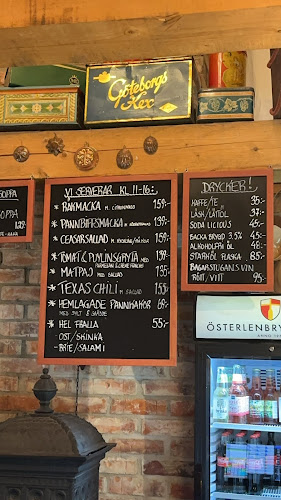 Göteborgs
Kex
SOPPA
SOPPA
VI SERVERAR KL 11-16:
* RÄKMACKA M. CITRONMAJO 159:-
* PANNBIFFSMACKA 139:-
* CEASARSALLAD M. KYCKLING/RÄKOR 159:-
* TOMAT & PUYLINSGRYTA 139:-
* MATPAJ MED SALLAD 135:-
* TEXAS CHILI M. SALLAD 155:-
* HEMLAGADE PANNKAKOR 69:-
MED SYLT & GRÄDDE
* HEL FRALLA 55:-
OST/SKINKA
- BRIE/SALAMI
DRYCKER!
KAFFE/TE 36:-
LÄSK/LÄTTÖL 35:-
SODA LICIOUS 38:-
BACKA BRYGD 3.5% 45:-
ALKOHOLFRI ÖL 45:-
STARKÖL FLASKA 85:-
BAGARSTUGANS VIN
RÖTT/VITT 95:-
ÖSTERLENBRY